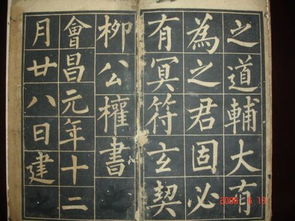 之道輔大有
為之君固必
有冥符玄契
柳公權書
會昌元年十二
月廿八日建